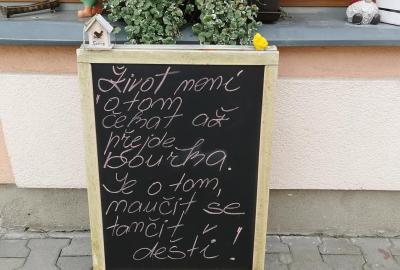 Život není
o tom
čekat až
přejde
bouřka.
Je o tom,
naučit se
tančit v
dešti!